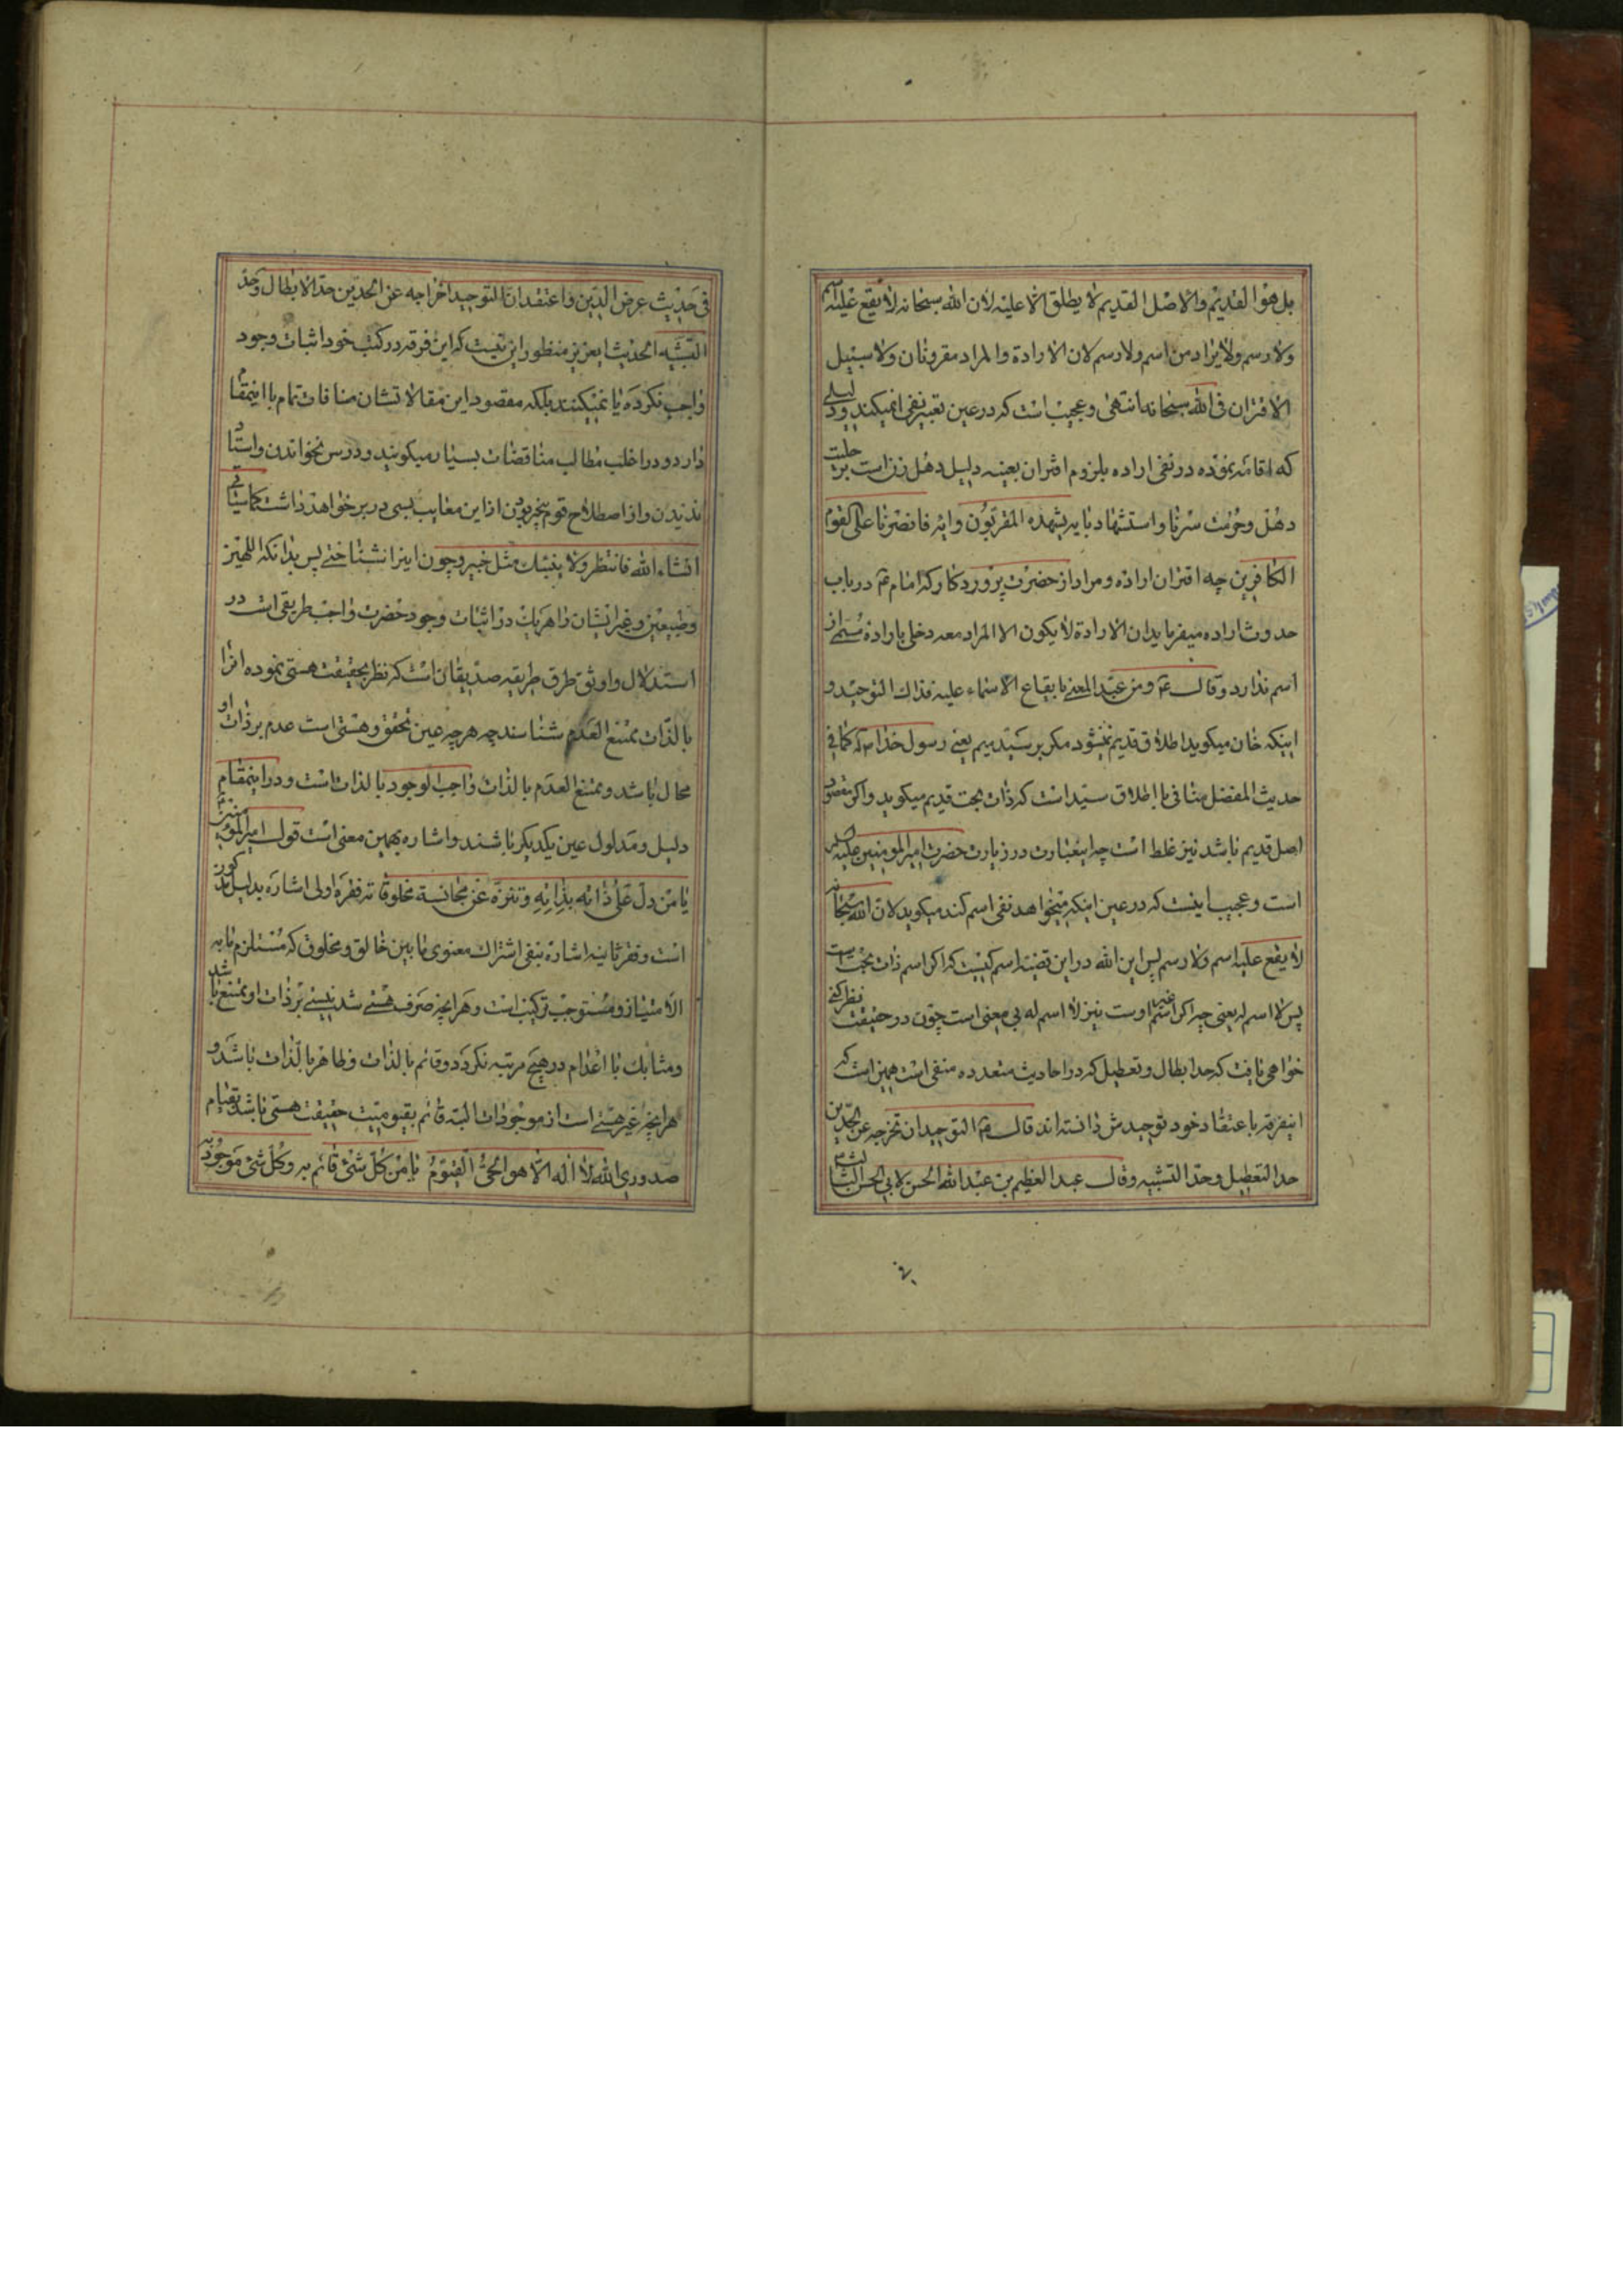 بل هو القدیم والاصل القدیم لا یطلق الا علیه لان الله سبحانه لا یقع علیه اسم
ولا رسم ولا یراد من اسم ولا رسم لان الارادة والمراد مقرونان ولا سبیل
الاقتران فی الله سبحانه انتهی وعجیب است که در عین تعبیر نفی انمیکند ودلیلی
که اقامه نموده در نفی اراده بلزوم اقتران بعینه دلیل دهل زن است بر حلیت
دهل وحرمت سرنا واستشهاد بایه یشهده المقربون وایه فانصرنا علی القوم
الکافرین چه اقتران اراده ومراد از حضرت پروردکار که امام ع در باب
حدوث اراده میفرماید ان الارادة لا یکون الا المراد معه دخلی باراده مسمی از
اسم ندارد وقال ع ومن عبد المعنی بایقاع الاسماء علیه فذاک التوحید و
اینکه خان میکوید اطلاق قدیم نمیشود مکر بر سید ییم یعنی رسول خدا ص که کما فی
حدیث المفضل منافی با اطلاق سید است که ذات بحت قدیم میکوید واکر مقصود
اصل قدیم باشد نیز غلط است چه اینعبارت در زیارت حضرت امیر المومنین علیه السلم
است وعجیب اینست که در عین اینکه میخواهد نفی اسم کند میکوید لان الله سبحانه
لا یقع علیه اسم ولا رسم پس این الله در این قضیه اسم کیست که اکر اسم ذات بحت نیست
پس لا اسم له یعنی چه اکر اسم غیر اوست نیز لا اسم له بی معنی است چون در حقیقت نظر کنی
خواهی یافت که حد ابطال وتعطیل که در احادیث متعدده منفی است همین است که
اینفرقه باعتقاد خود توحیدش دانسته اند قال ع التوحید ان تخرجه عن الحدین
حد التعطیل وحد التشبیه وقال عبد العظیم بن عبد الله الحسن لابی الحسن الثالث ع
فی حدیث عرض الدین واعتقد ان التوحید اخراجه عن الحدین حد الابطال وحد
التشبیه الحدیث ایعزیز منظور این نیست که این فرقه در کتب خود اثبات وجود
واجب نکرده یا نمیکنند بلکه مقصود این مقالاتشان منافات تمام با اینمقام
دارد ودر اغلب مطالب مناقضات بسیار میکویند ودرس نخواندن واستاد
ندیدن واز اصطلاح قوم بیخبر بودن از این معایب بسی در بر خواهد داشت کما سیاتی
انشاء الله فانتظر ولا ینبئک مثل خبیر وچون اینرا نشناختی پس بدانکه الهیین
وطبیعیین وغیر ایشان را هر یک در اثبات وجود حضرت واجب طریقی است در
استدلال واوثق طرق طریقه صدیقان است که نظر بحقیقت هستی نموده انرا
بالذات ممتنع العدم شناسند چه هر چه عین تحقق وهستی است عدم بر ذات او
محال باشد وممتنع العدم بالذات واجب الوجود بالذات است ودر اینمقام
دلیل ومدلول عین یکدیکر باشند واشاره بهمین معنی است قول امیر المؤمنین ع
یا من دل علی ذاته بذاته وتنزه عن مجانسة مخلوقاته فقره اولی اشاره بدلیل مذکور
است وفقره ثانیه اشاره بنفی اشتراک معنوی ما بین خالق ومخلوق که مستلزم ما به
الامتیاز ومستوجب ترکیب است وهر انچه صرف هستی شد نیستی بر ذات او ممتنع باشد
ومتشابک با اعدام در هیچ مرتبه نکردد وقائم بالذات وظاهر بالذات باشد و
هر انچه غیر هستی است از موجودات البته قائم بقیومیت حقیقت هستی باشد بقیام
صدوری الله لا اله الا هو الحی القیوم یا من کل شیء قائم به وکل شیء موجود به